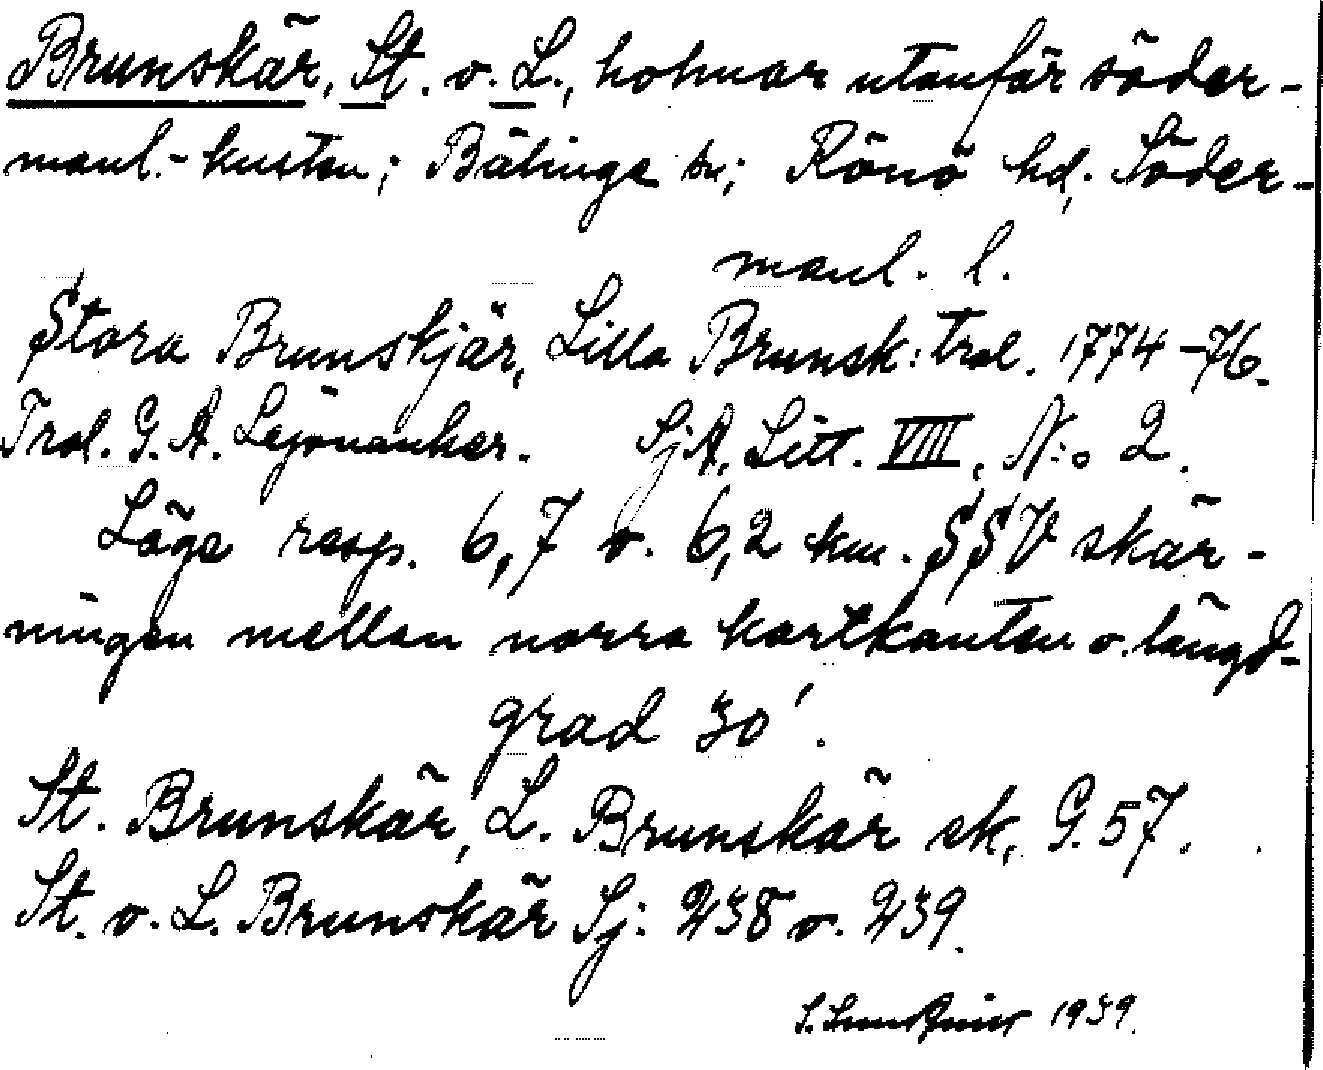 Brunskär, St. o. L., holmar utanför söder-
manl.-kusten; Bälinge sn; Rönö hd, Söder-
manl. l.
Stora Brunskjär, Lilla Brunsk: trol. 1774-76.
Trol. G. A. Lejonanker. SjA, Litt. VIII, N:o 2.
Läge resp. 6,7 o. 6,2 km. SSV skär-
ningen mellan norra kartkanten o. längd-
grad 30'.
St. Brunskär, L. Brunskär ek, G. 57.
St. o. L. Brunskär Sj: 238 o. 239.
1939.